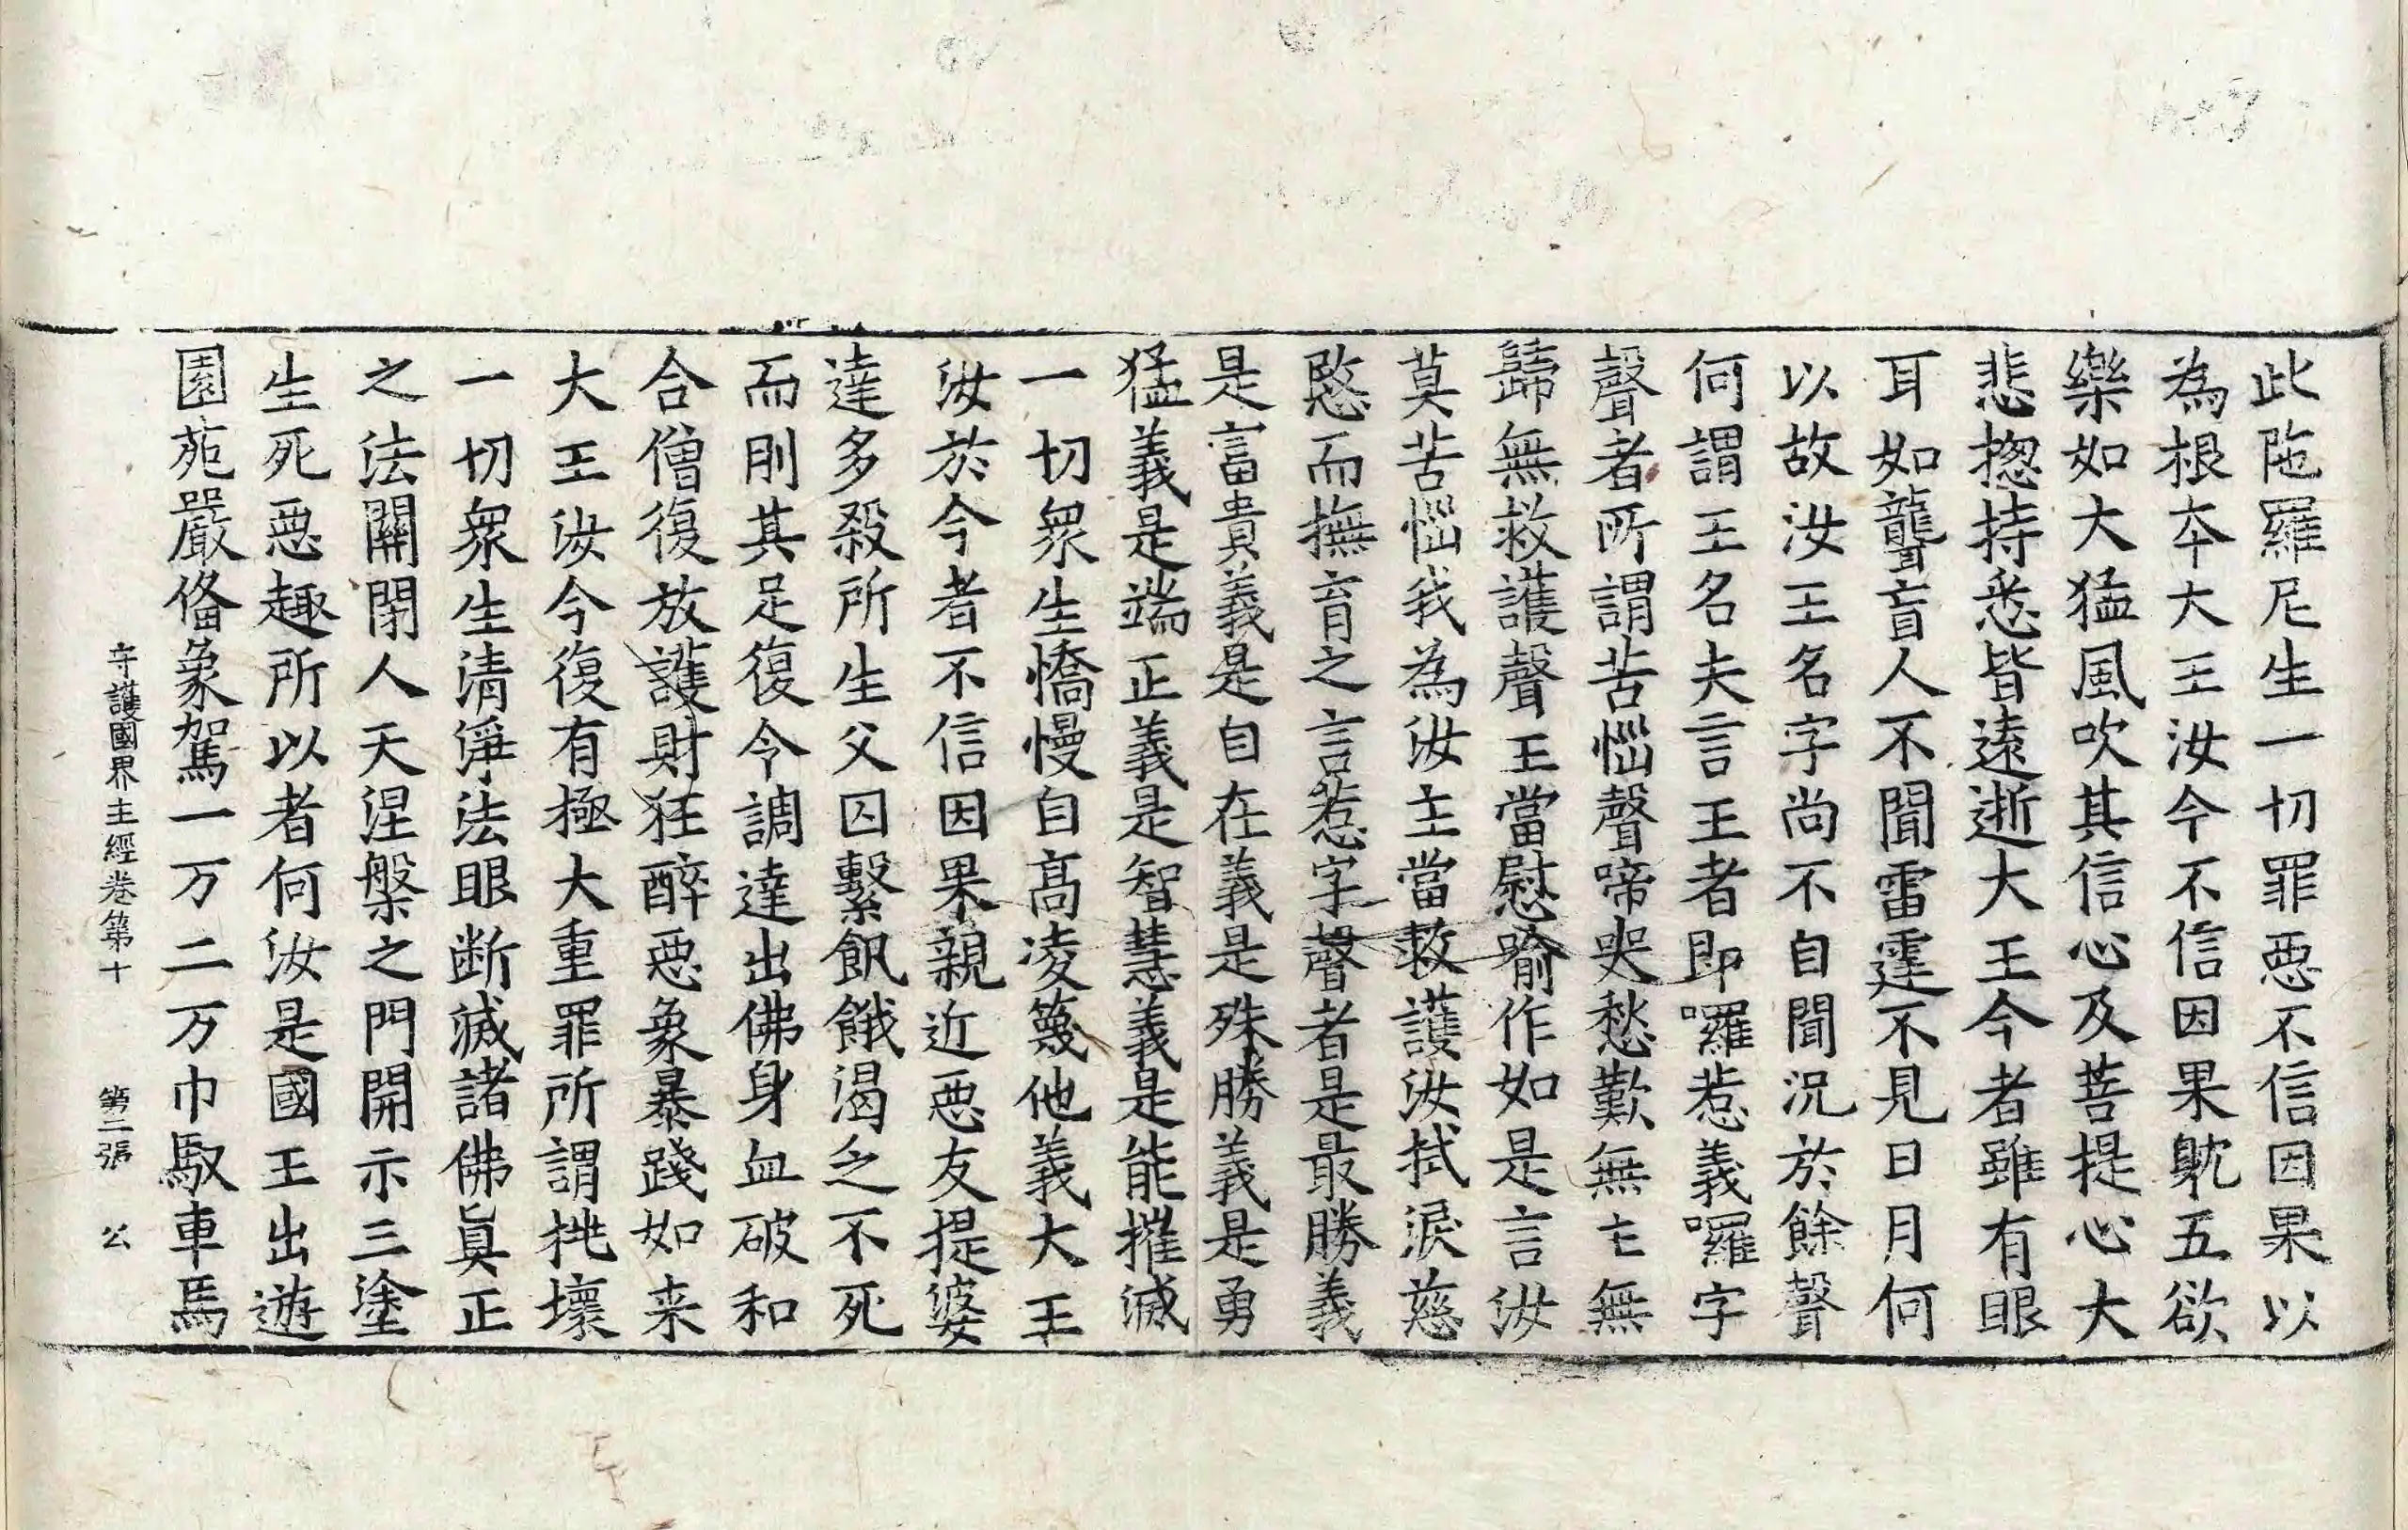 此陁羅尼生一切罪惡不信因果以
為根夲大王汝今不信因果躭五欲
樂如大猛風吹其信心及菩提心大
悲揔持悉皆遠逝大王今者雖有眼
耳如聾盲人不聞雷霆不見日月何
以故汝王名字尚不自聞況於餘聲
何謂王名夫言王者即囉惹義囉字
聲者所謂苦惱聲啼哭愁歎無主無
歸無救護聲王當慰喻作如是言汝
莫苦惱我為汝主當救護汝拭淚慈
愍而撫育之言惹字聲者是最勝義
是富貴義是自在義是殊勝義是勇
猛義是端正義是智慧義是能摧滅
一切衆生憍慢自髙凌篾他義大王
汝於今者不信因果親近惡友提婆
達多殺所生父囚繫飢餓渴乏不死
而刖其足復令調達出佛身血破和
合僧復放護財狂醉惡象暴踐如来
大王汝今復有極大重罪所謂挑壞
一切衆生清淨法眼断滅諸佛真正
之法關閇人天涅槃之門開示三塗
生死惡趣所以者何汝是國王出遊
園苑嚴俻象駕一万二万巾馭車馬
守護國界主經卷第十　第三張　公